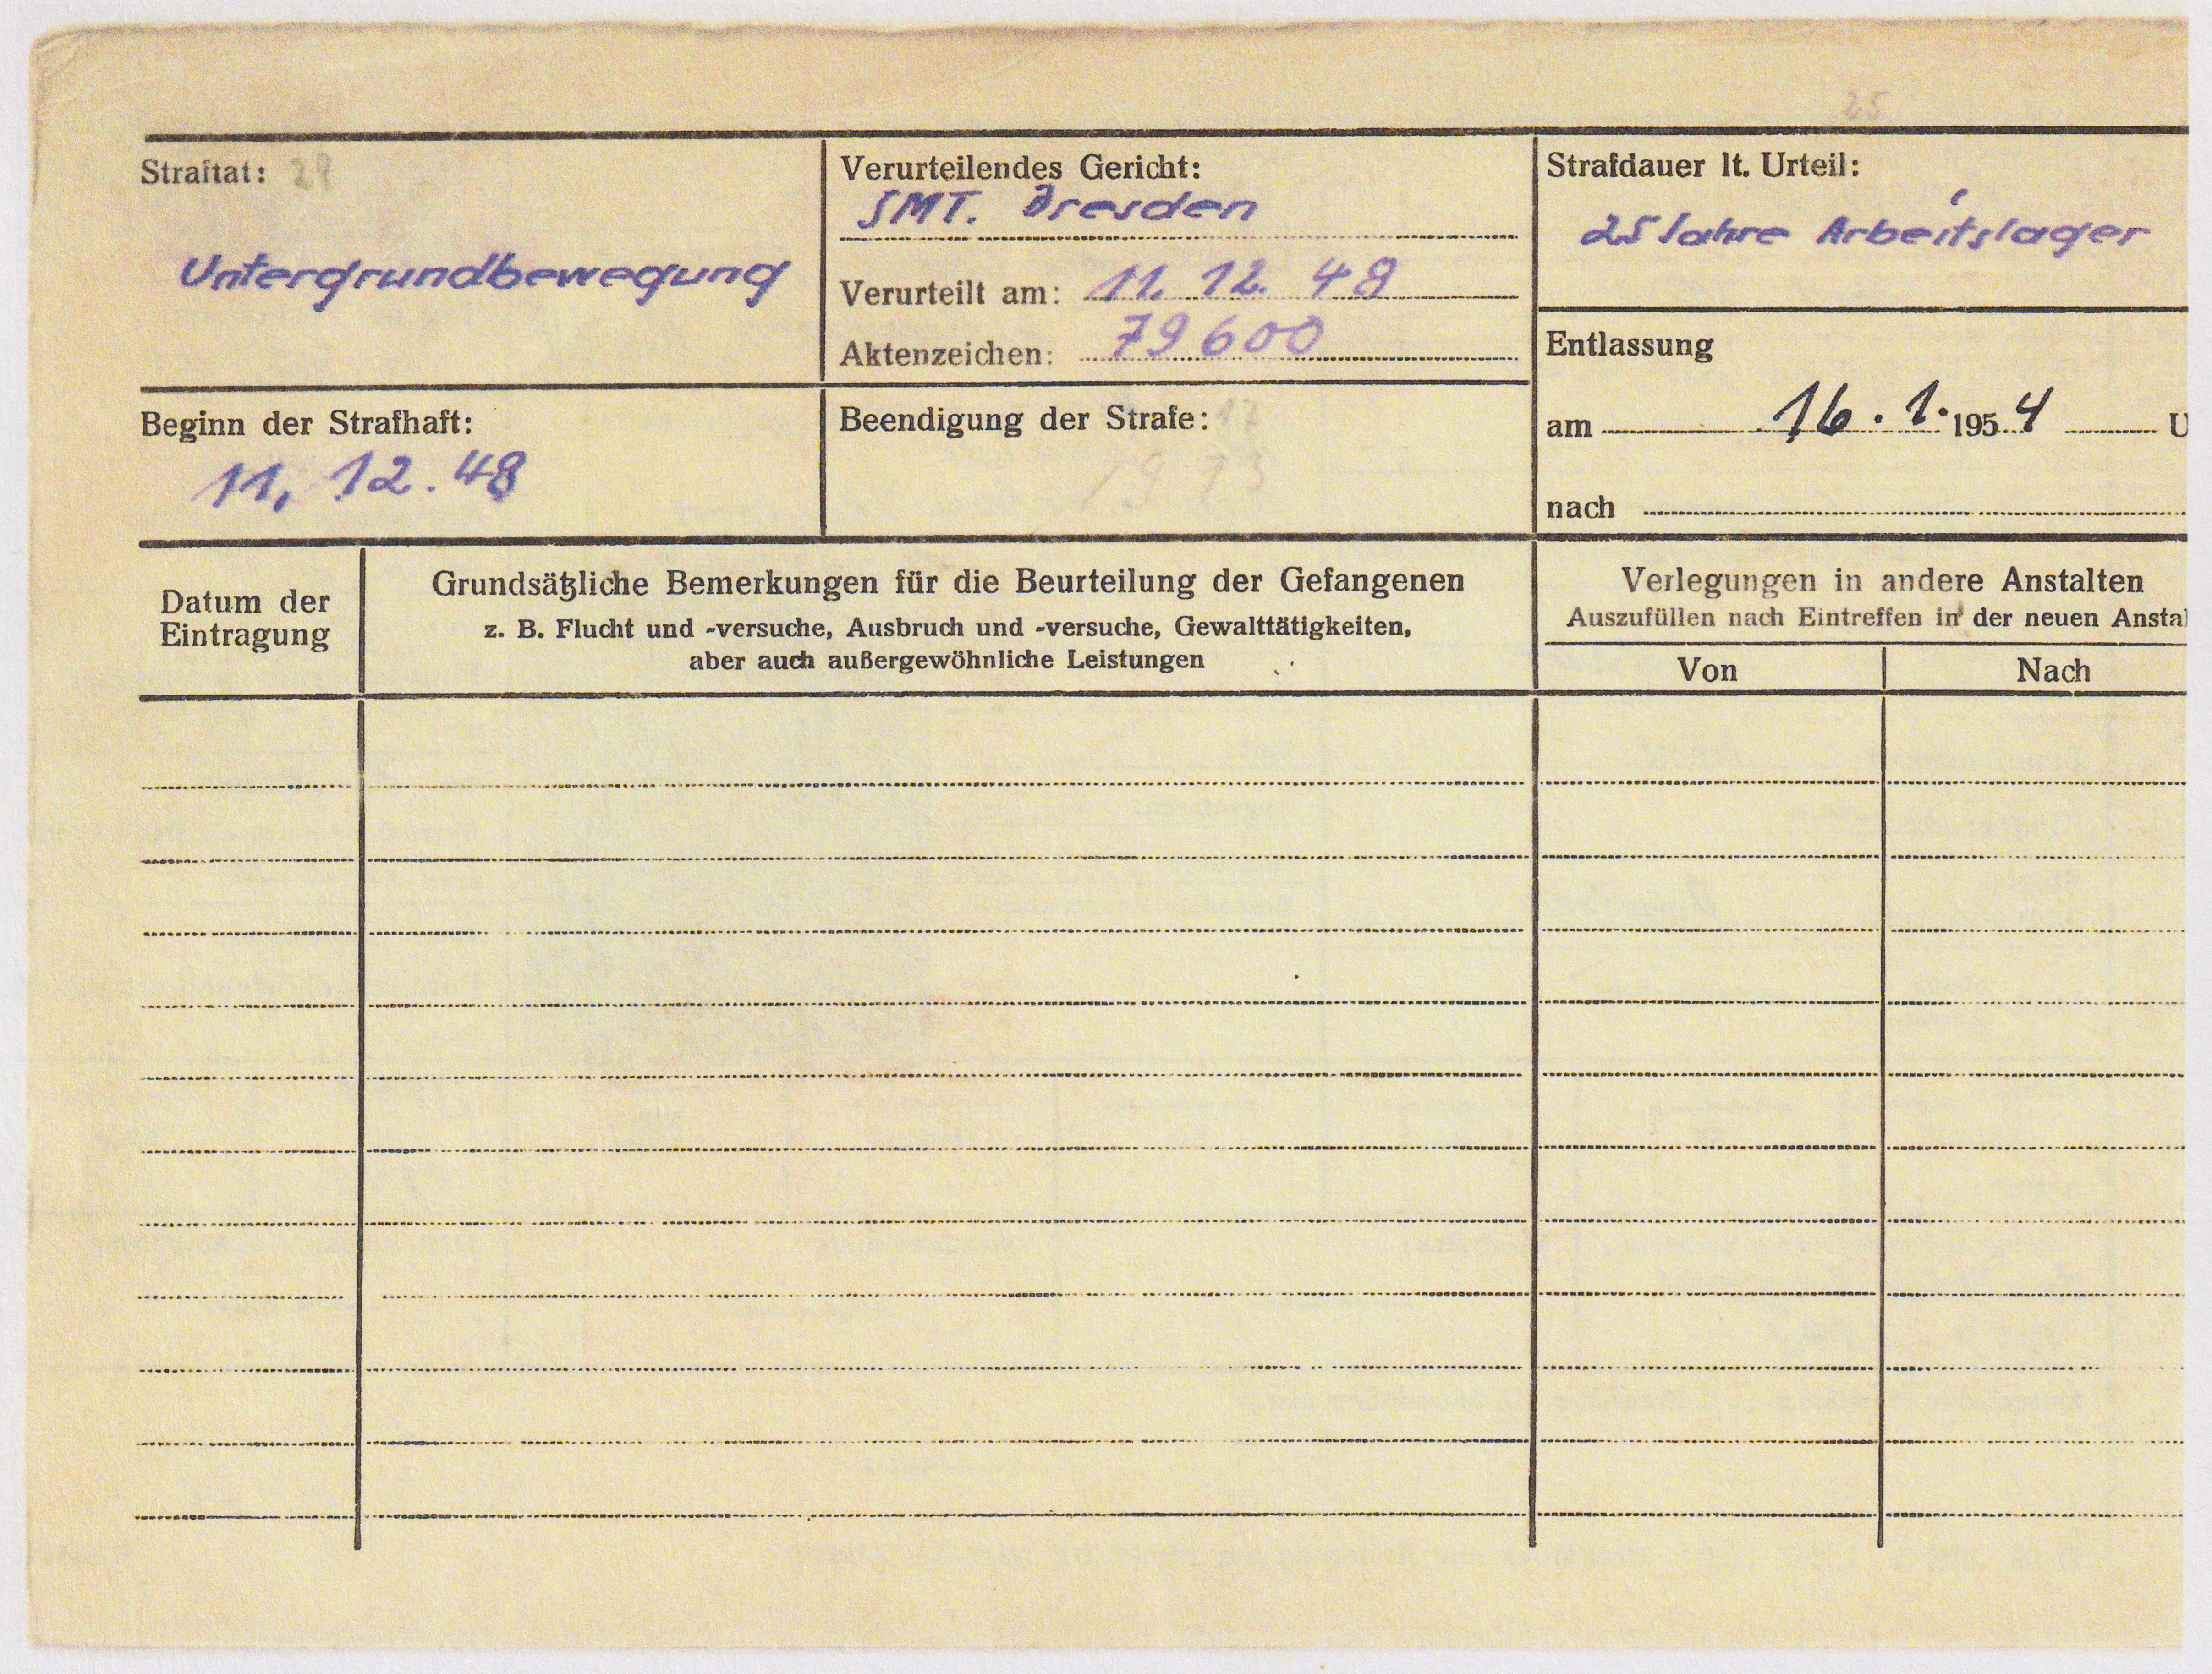 25
Straftat: 29
Untergrundbewegung
Verurteilendes Gericht:
SMT. Dresden
Verurteilt am: 11. 12. 48
Aktenzeichen: 79600
Strafdauer lt. Urteil:
25 Jahre Arbeitslager
Entlassung
am 16. 1. 1954 U
nach
Beginn der Strafhaft:
11. 12. 48
Beendigung der Strafe:
1973
Datum der
Eintragung
Grundsätzliche Bemerkungen für die Beurteilung der Gefangenen
z. B. Flucht und -versuche, Ausbruch und -versuche, Gewalttätigkeiten,
aber auch außergewöhnliche Leistungen
Verlegungen in andere Anstalten
Auszufüllen nach Eintreffen in der neuen Anstal
Von
Nach